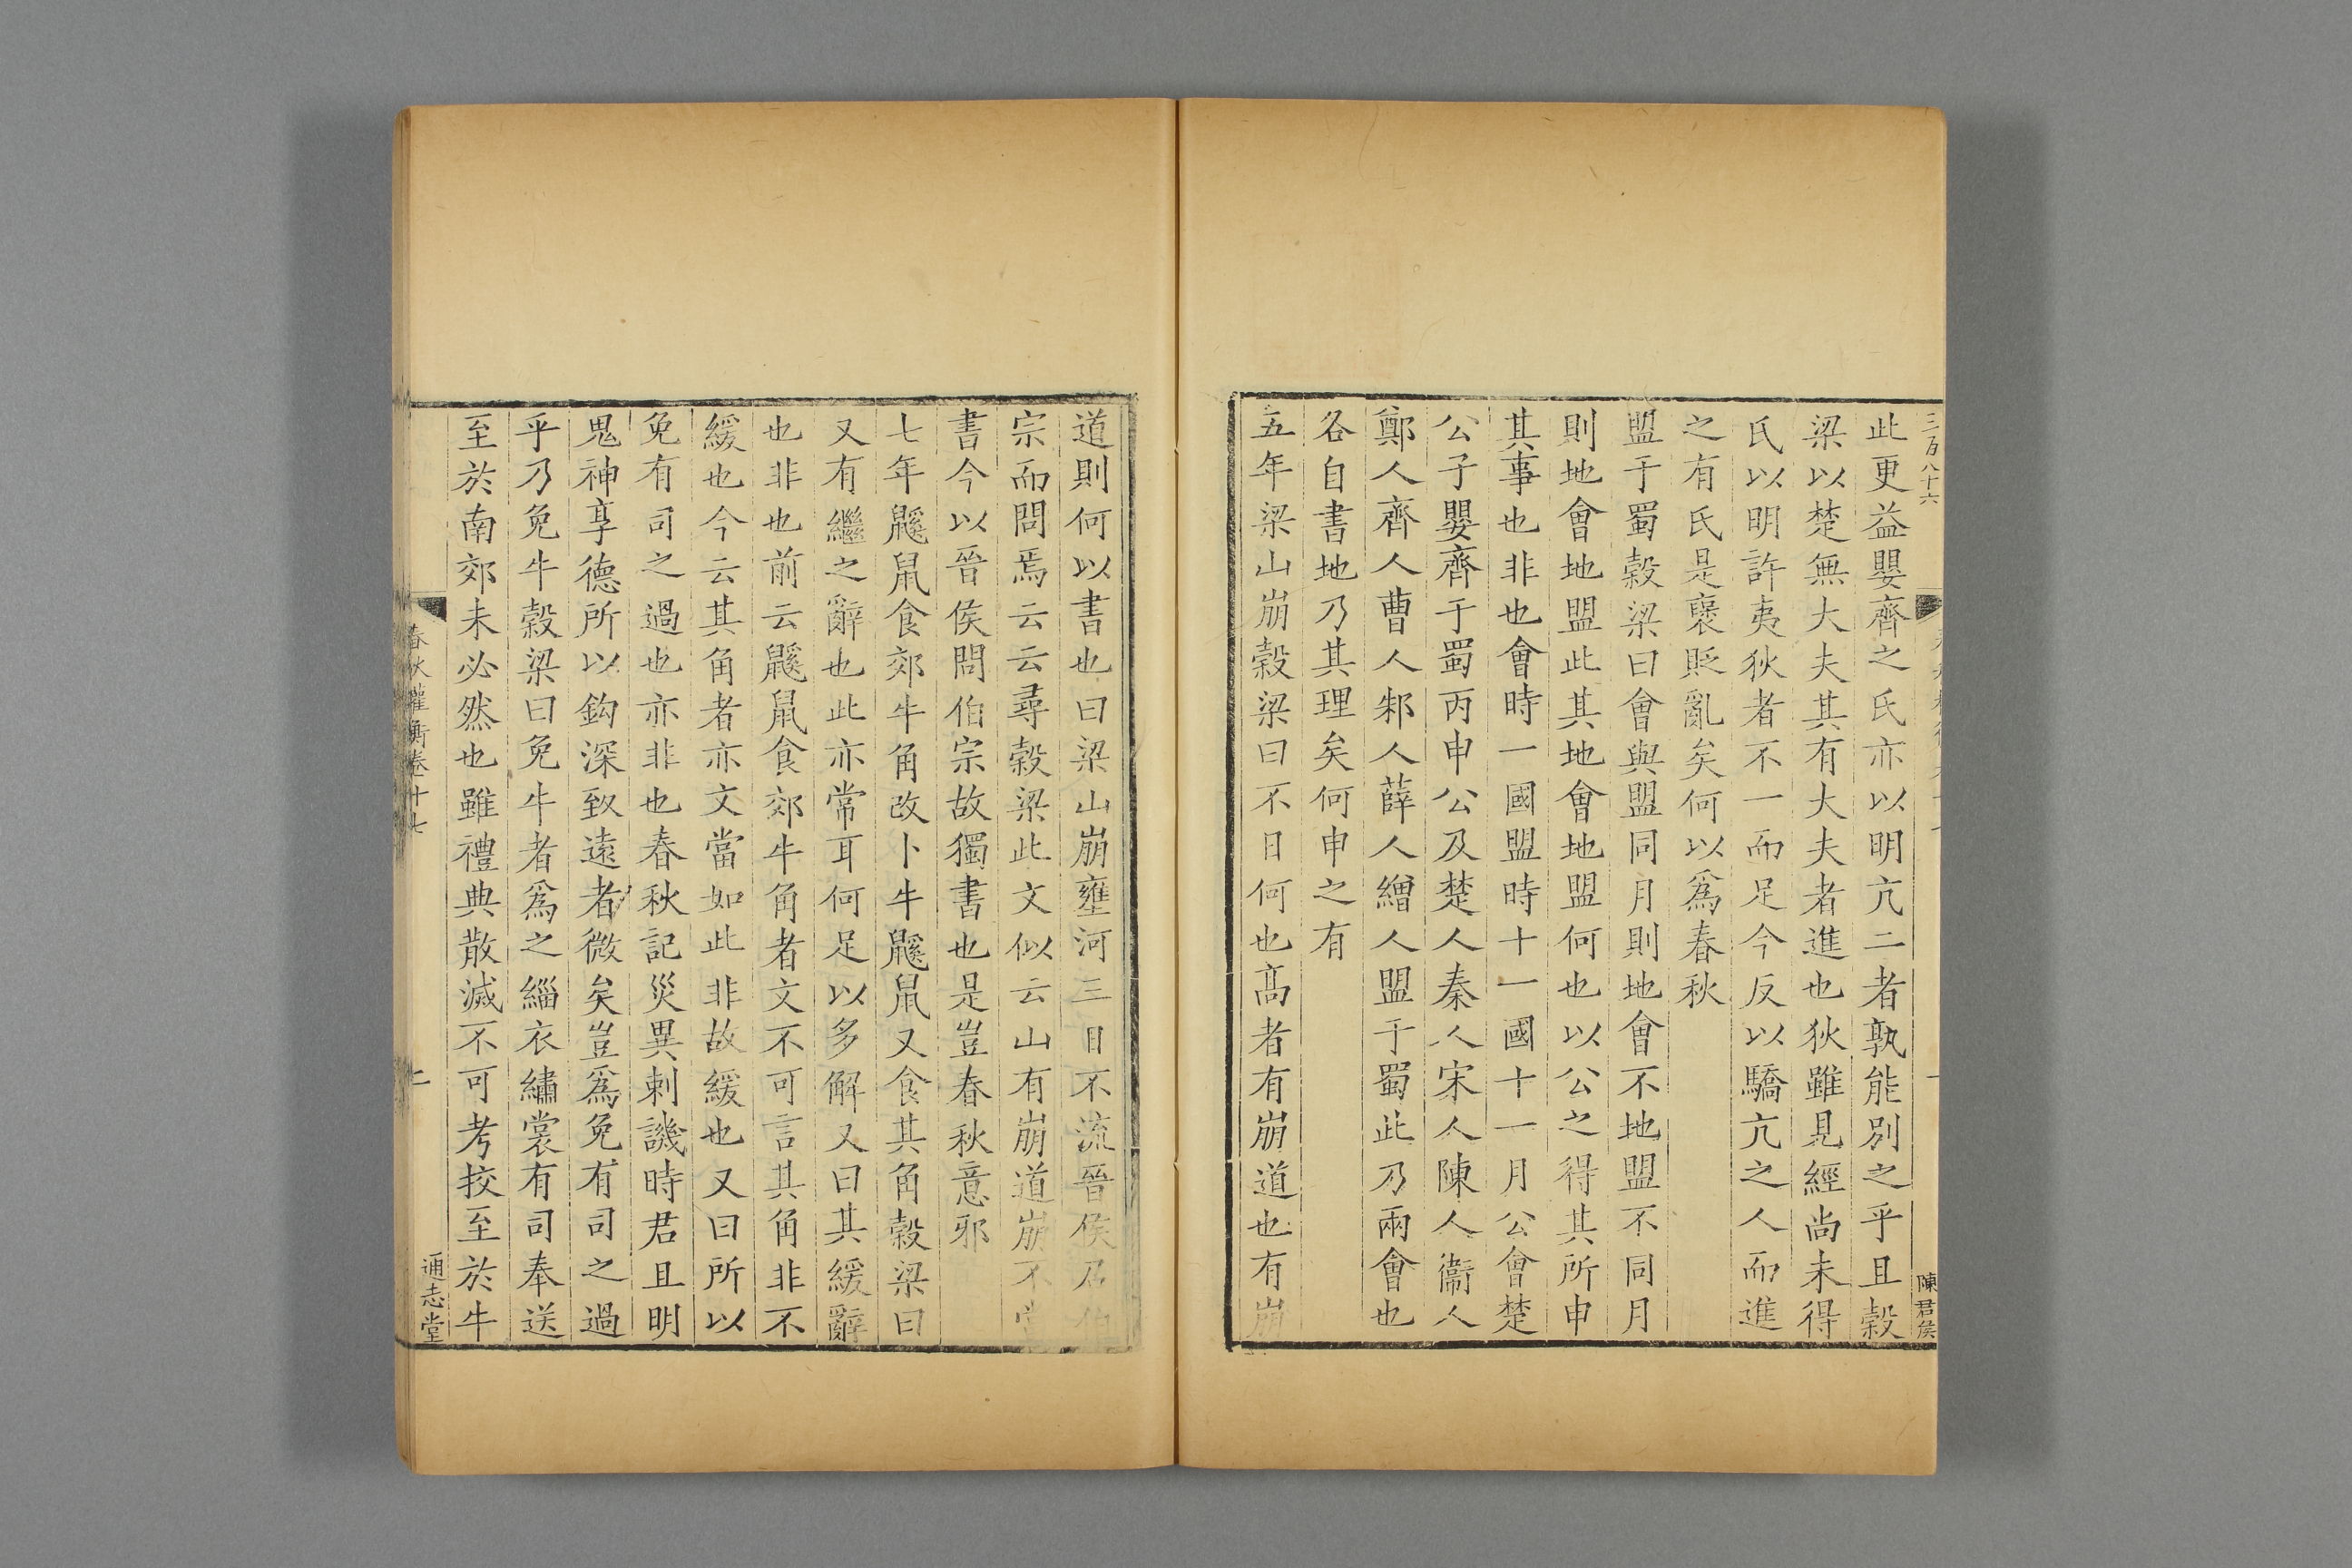 三百八十六
陳君侯
此更益嬰齊之氏亦以明亢二者孰能別之乎且穀
梁以楚無大夫其有大夫者進也狄雖見經尚未得
氏以明許夷狄者不一而足今反以驕亢之人而進
之有氏是襃貶亂矣何以爲春秋
盟于蜀穀梁曰會與盟同月則地會不地盟不同月
則地會地盟此其地會地盟何也以公之得其所申
其事也非也會時一國盟時十一國十一月公會楚
公子嬰齊于蜀丙申公及楚人秦人宋人陳人衞人
鄭人齊人曹人邾人薛人繒人盟于蜀此乃兩會也
各自書地乃其理矣何申之有
五年梁山崩穀梁曰不日何也髙者有崩道也有崩
道則何以書也曰梁山崩壅河三日不流晉侯召伯
宗而問焉云云尋穀梁此文似云山有崩道崩不
書今以晉侯問伯宗故獨書也是豈春秋意邪
七年鼷鼠食郊牛角改卜牛鼷鼠又食其角穀梁曰
又有繼之辭也此亦常耳何足以多解又曰其緩辭
也非也前云鼷鼠食郊牛角者文不可言其角非不
緩也今云其角者亦文當如此非故緩也又曰所以
免有司之過也亦非也春秋記災異刺譏時君且明
鬼神享德所以鈎深致遠者微矣豈爲免有司之過
乎乃免牛穀梁曰免牛者爲之緇衣纁裳有司奉送
至於南郊未必然也雖禮典散滅不可考挍至於牛
春秋權衡卷十七
二
通志堂